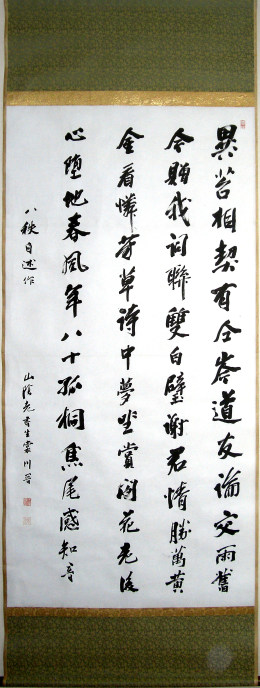 異苔相契有仝岑道友論交雨舊
今貽我詞聯雙白璧謝君情勝萬黃
金看憐芳草詩中夢坐賞閑花老後
心墮地春風年八十孤桐焦尾感知音
八秩自述作
山陰老書生